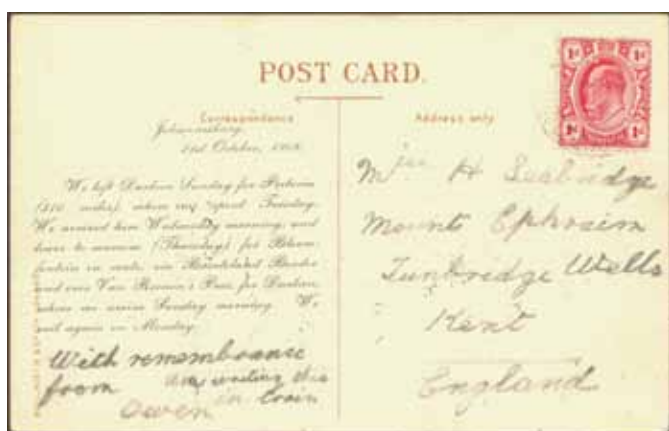 POST CARD.
Correspondence
Address only
1d 1d
Johannesburg,
21st October,
We left Durban Sunday for Pretoria
(510 miles) where we spent Tuesday.
We arrived here Wednesday morning, and
leave to-morrow (Thursday) for Bloem-
fontein en route, via Bethlehem
and over Van Reenen's Pass, for Durban,
where we arrive Sunday morning. We
sail again on Monday.
With remembrance
from am writing this
Owen in train
Miss H Seabridge
Mount Ephraim
Tunbridge Wells
Kent
England